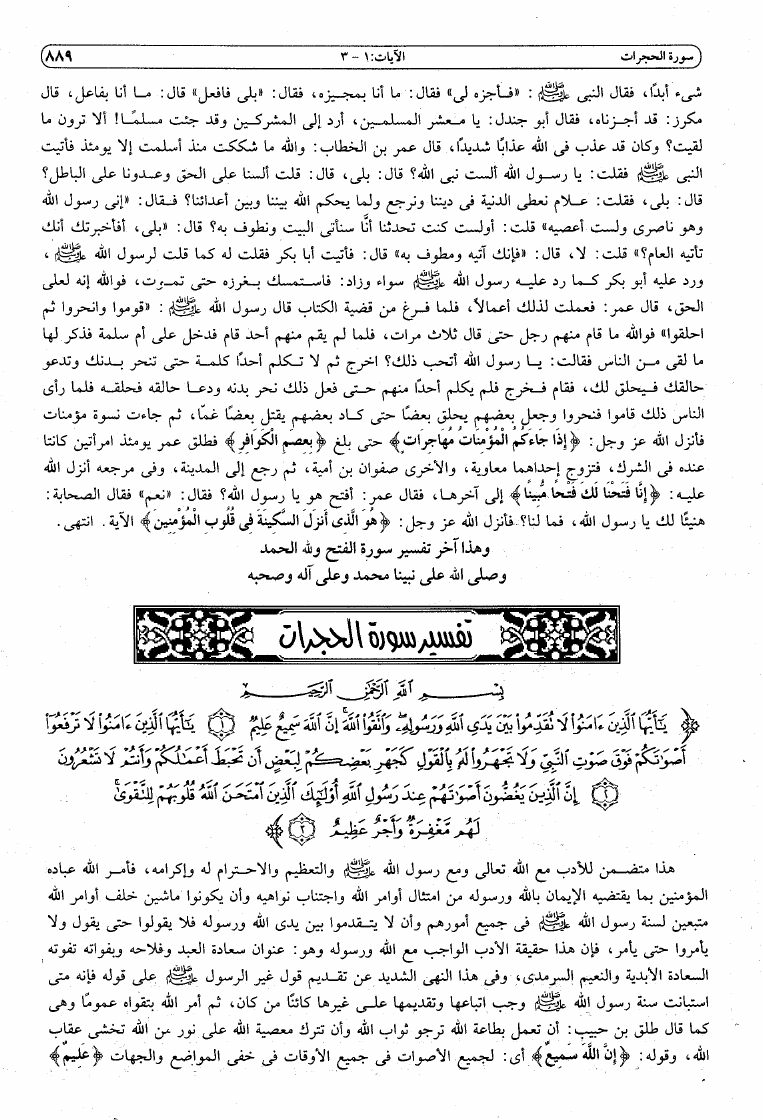 سورة الحجرات
الآيات: ١ - ٣
٨٨٩
شىء أبدًا، فقال النبى ﷺ : «فـأجزه لى» فقال: ما أنا بمجـيزه، فقال: «بلى فافعل» قال: مـا أنا بفاعل، قال
مكرز: قد أجـزناه، فقال أبو جندل: يا مـعشر المسلمـين، أرد إلى المشركـين وقد جئت مسلمًـا! ألا ترون ما
لقيت؟ وكان قد عذب فى الله عذابًا شديدًا، قال عمر بن الخطاب: والله ما شككت منذ أسلمت إلا يومئذ فأتيت
النبى ﷺ فقلت: يا رسـول الله ألست نبى الله؟ قال: بلى، قال: قلت ألسنا على الحق وعـدونا على الباطل؟
قال: بلى، فقلت: عـلام نعطى الدنية فى ديننا ونرجع ولما يحكم الله بيننا وبين أعدائنا؟ فـقال: «إنى رسول الله
وهو ناصرى ولست أعصيه» قلت: أولست كنت تحدثنا أنَّا سنأتى البيت ونطوف به؟ قال: «بلى، أفأخبرتك أنك
تأتيه العام؟» قلت: لا، قال: «فإنك آتيه ومطوف به» قال: فأتيت أبا بكر فقلت له كما قلت لرسول الله ﷺ ،
ورد عليه أبو بكر كـما رد عليـه رسول الله ﷺ سواء وزاد: فاستمسك بـغرزه حتى تمـوت، فوالله إنه لعلى
الحق، قال عمر: فعملت لذلك أعمالاً، فلما فـرغ من قضية الكتاب قال رسول الله ﷺ : «قوموا وانحروا ثم
احلقوا» فوالله ما قام منهم رجل حتى قال ثلاث مرات، فلما لم يقم منهم أحد قام فدخل على أم سلمة فذكر لها
ما لقى مـن الناس فقالت: يـا رسول الله أتحب ذلك؟ اخرج ثم لا تـكلم أحدًا كلمـة حتى تنحر بـدنك وتدعو
حالقك فـيحلق لك، فقام فـخرج فلم يكلم أحدًا منهم حـتى فعل ذلك نحر بدنه ودعـا حالقه فحلقـه فلما رأى
الناس ذلك قاموا فنحروا وجعل بعضهم يحلق بعضًا حتى كـاد بعضهم يقتل بعضًا غمًا، ثم جاءت نسوة مؤمنات
فأنزل الله عز وجل: ﴿إِذَا جَاءَكُمُ الْمُؤْمِنَاتُ مُهَاجِرَاتٍ﴾ حتى بلغ ﴿بِعِصَمِ الْكَوَافِرِ﴾ فطلق عمر يومئذ امرأتين كانتا
عنده فى الشرك، فتزوج إحداهما معاوية، والأخرى صفوان بن أمية، ثم رجع إلى المدينة، وفى مرجعه أنزل الله
عليـه: ﴿إِنَّا فَتَحْنَا لَكَ فَتْحًا مُّبِينًا﴾ إلى آخرهـا، فقال عمر: أفتح هو يا رسول الله؟ فقال: «نعم» فقال الصحابة:
هنيئًا لك يا رسول الله، فما لنا؟ فأنزل الله عز وجل: ﴿هُوَ الَّذِي أَنزَلَ السَّكِينَةَ فِي قُلُوبِ الْمُؤْمِنِينَ﴾ الآية. انتهى.
وهذا آخر تفسير سورة الفتح ولله الحمد
وصلى الله على نبينا محمد وعلى آله وصحبه
تفسير سورة الحجرات
بِسْمِ اللَّهِ الرَّحْمَٰنِ الرَّحِيمِ
﴿ يَٰٓأَيُّهَا الَّذِينَ ءَامَنُوا۟ لَا تُقَدِّمُوا۟ بَيْنَ يَدَىِ اللَّهِ وَرَسُولِهِۦ وَاتَّقُوا۟ اللَّهَ إِنَّ اللَّهَ سَمِيعٌ عَلِيمٌ ﴿١﴾ يَٰٓأَيُّهَا الَّذِينَ ءَامَنُوا۟ لَا تَرْفَعُوٓا۟
أَصْوَٰتَكُمْ فَوْقَ صَوْتِ النَّبِىِّ وَلَا تَجْهَرُوا۟ لَهُۥ بِالْقَوْلِ كَجَهْرِ بَعْضِكُمْ لِبَعْضٍ أَن تَحْبَطَ أَعْمَٰلُكُمْ وَأَنتُمْ لَا تَشْعُرُونَ
﴿٢﴾ إِنَّ الَّذِينَ يَغُضُّونَ أَصْوَٰتَهُمْ عِندَ رَسُولِ اللَّهِ أُو۟لَٰٓئِكَ الَّذِينَ امْتَحَنَ اللَّهُ قُلُوبَهُمْ لِلتَّقْوَىٰ
لَهُم مَّغْفِرَةٌ وَأَجْرٌ عَظِيمٌ ﴿٣﴾ ﴾
هذا متضـمن للأدب مع الله تعالى ومع رسول الله ﷺ والتعظيم والاحـترام له وإكرامه، فأمـر الله عباده
المؤمنين بما يقتضيه الإيمان بالله ورسوله من امتثال أوامر الله واجتناب نواهيه وأن يكونوا ماشين خلف أوامر الله
متبعين لسنة رسول الله ﷺ فى جميع أمورهم وأن لا يتـقدموا بين يدى الله ورسوله فلا يقولوا حتى يقول ولا
يأمروا حتى يأمر، فإن هذا حقيقة الأدب الواجب مع الله ورسوله وهو: عنوان سعادة العبد وفلاحه وبفواته تفوته
السعادة الأبدية والنعيم السرمدى، وفى هذا النهى الشديد عن تقـديم قول غير الرسول ﷺ على قوله فإنه متى
استبانت سنة رسول الله ﷺ وجب اتباعها وتقديمها علـى غيرها كائنًا من كان، ثم أمر الله بتقواه عمومًا وهى
كما قال طلق بن حبيب: أن تعمل بطاعة الله ترجو ثواب الله وأن تترك معصية الله على نور من الله تخشى عقاب
الله، وقوله: ﴿إِنَّ اللَّهَ سَمِيعٌ﴾ أى: لجميع الأصوات فى جميع الأوقات فى خفى المواضع والجهات ﴿عَلِيمٌ﴾